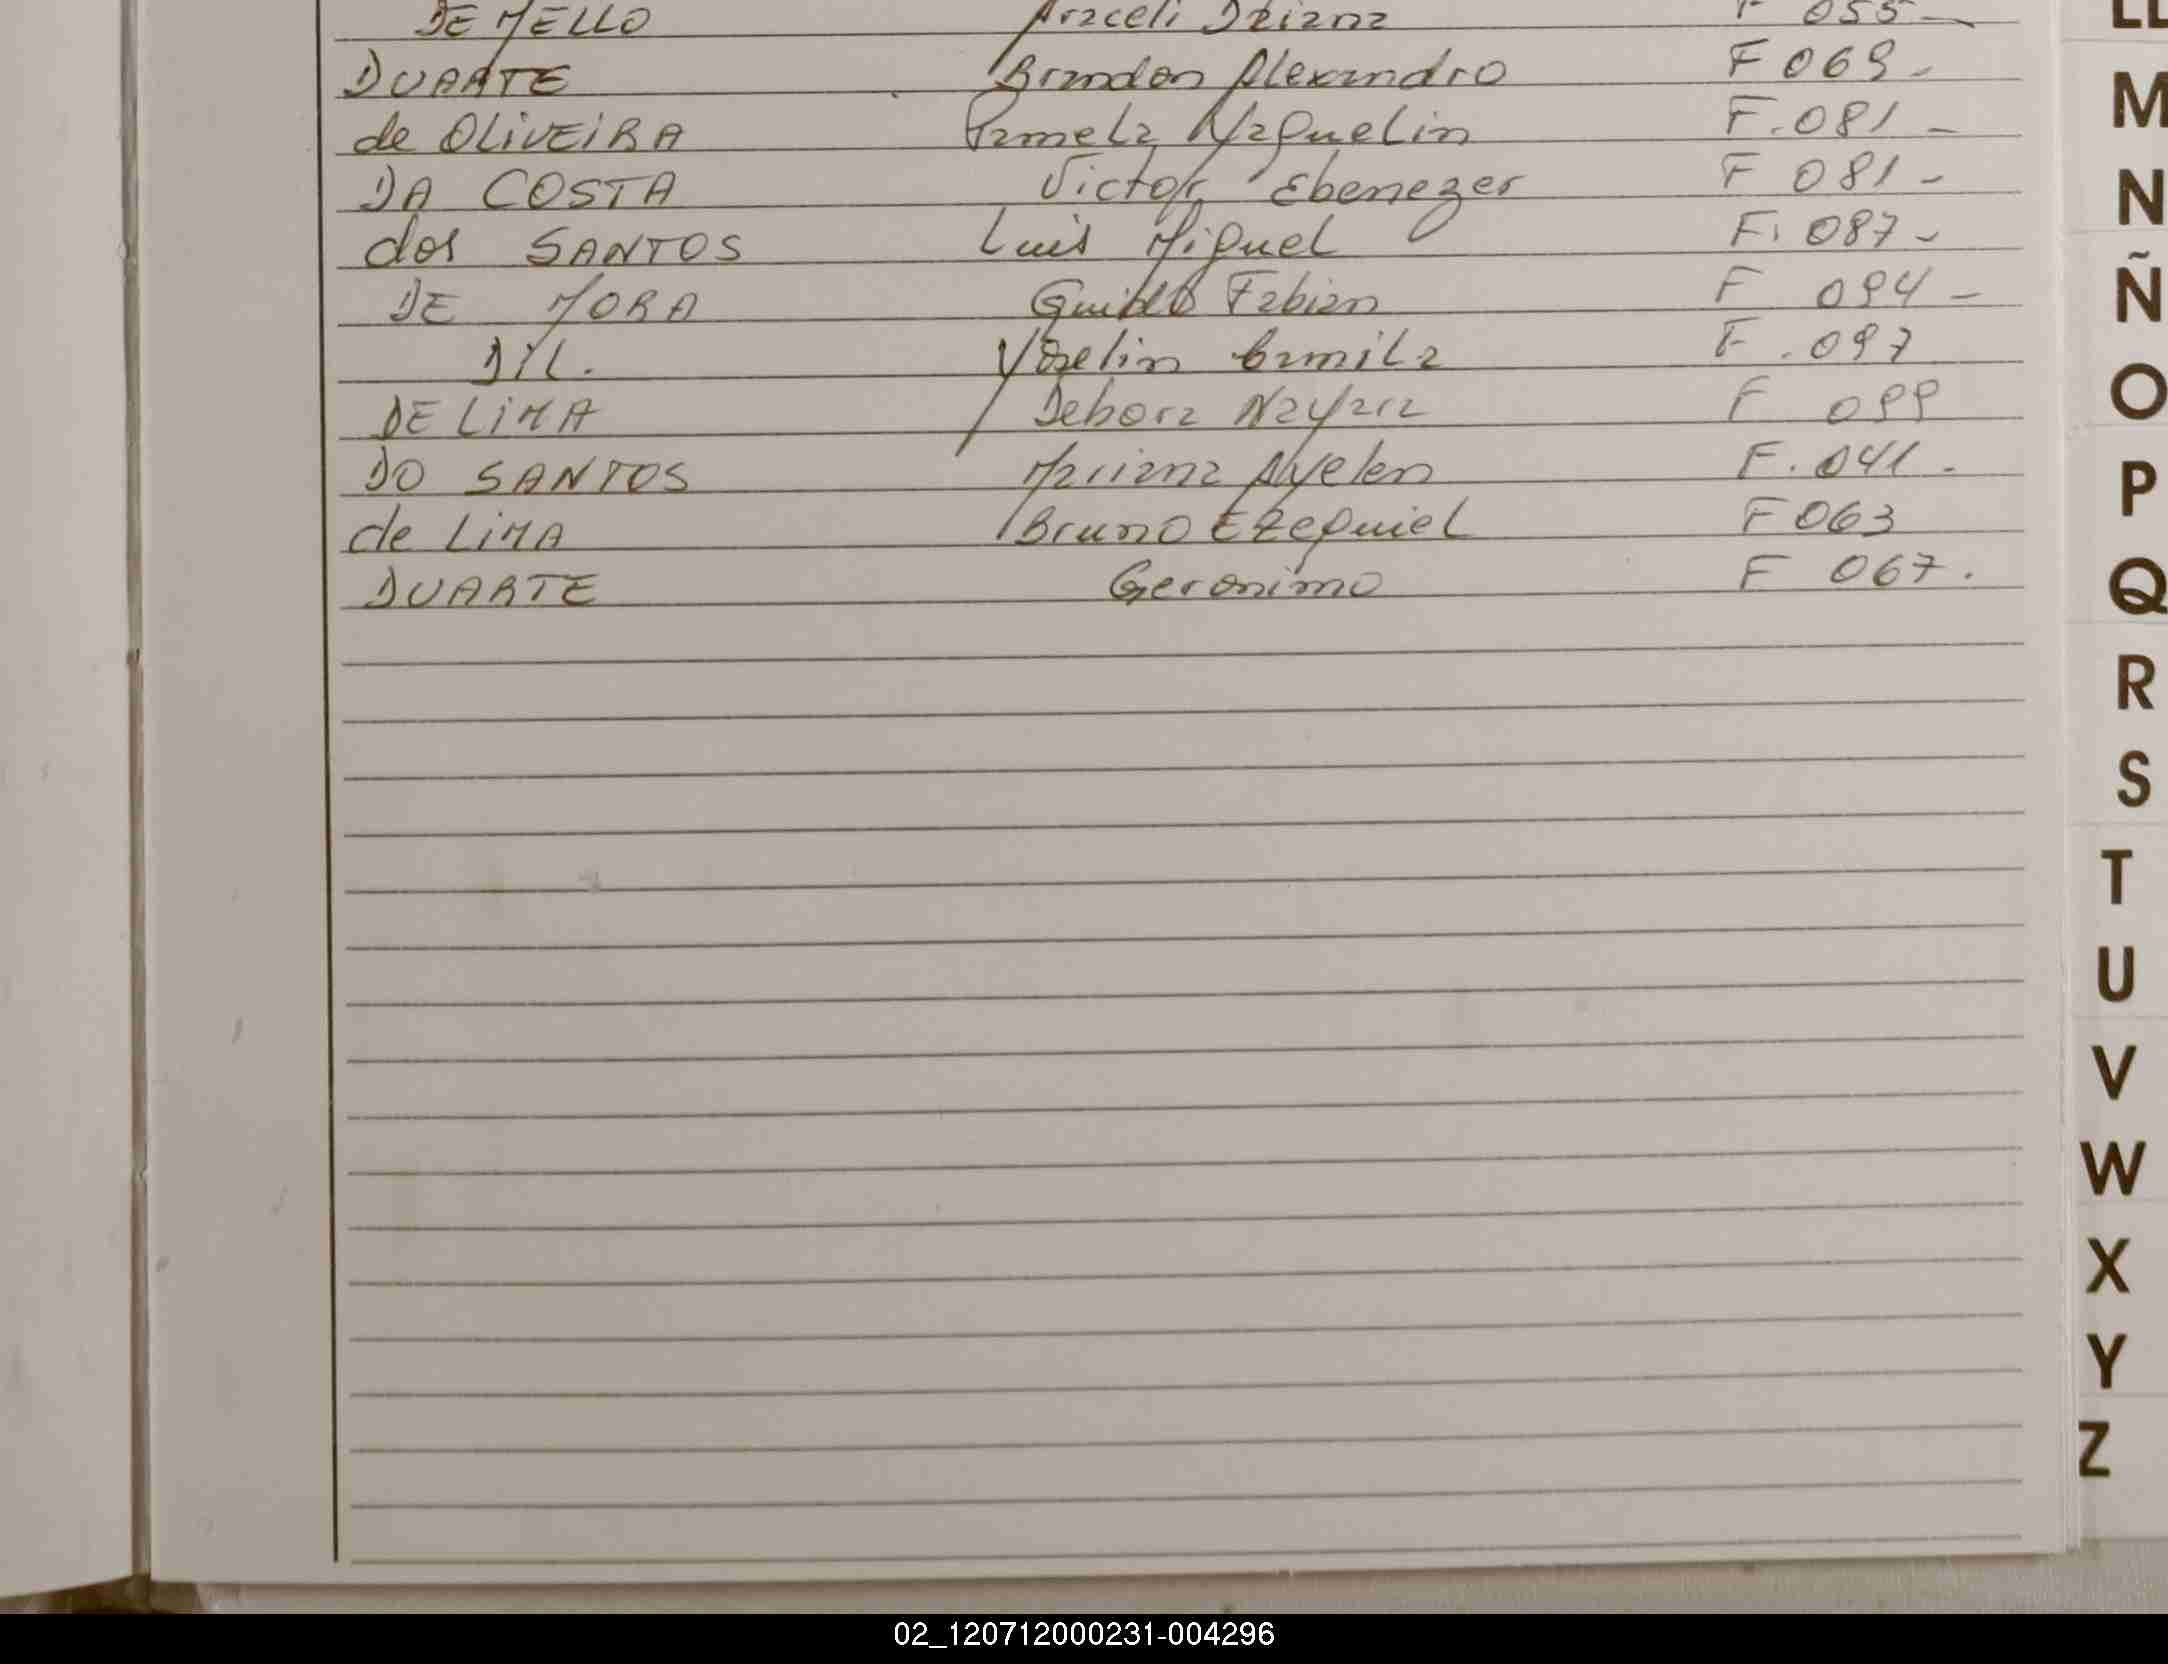 DE MELLO Araceli Daiana F 055 -
DUARTE Brandon Alexandro F 069 -
de OLiVEiRA Pamela Yaquelin F. 081 -
DA COSTA Victor Ebenezer F 081 -
dos SANTOS Luis Miguel F. 087 -
DE MORA Guido Fabian F 094 -
DIL. Yoselin Camila F. 097
DE LiMA Debora Nayara F 099
DO SANTOS Mariana Ayelen F. 041 -
de LiMA Bruno Ezequiel F 063
DUARTE Geronimo F 067.
LL
M
N
Ñ
O
P
Q
R
S
T
U
V
W
X
Y
Z
02_120712000231-004296